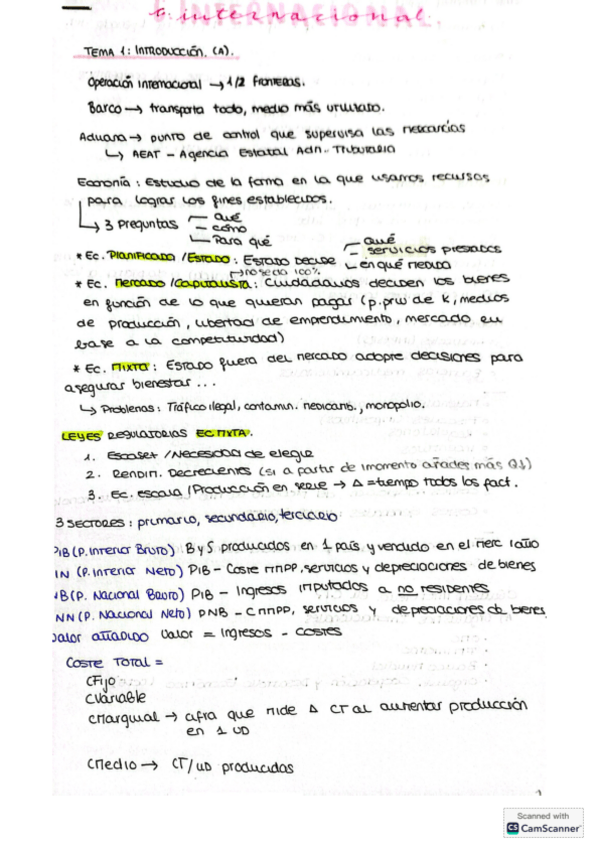 G. INTERNACIONAL.
TEMA 1: INTRODUCCIÓN. (A).
Operación internacional → 1/2 fronteras.
Barco → transporta todo, medio más utilizado.
Aduana → punto de control que supervisa las mercancías
↳ AEAT - Agencia Estatal Adn. Tributaria
Economía: Estudio de la forma en la que usamos recursos
para lograr los fines establecidos.
↳ 3 Preguntas
qué
cómo
Para qué
* Ec. Planificada /Estado: Estado decide
qué
servicios prestados
en qué medida
→ no se da 100%
* Ec. Mercado /Capitalista: Ciudadanos deciden los bienes
en función de lo que quieran pagar (p. priv de k, medios
de producción, libertad de emprendimiento, mercado en
base a la competitividad)
* Ec. Mixta: Estado fuera del mercado adopte decisiones para
asegurar bienestar...
↳ Problemas: Tráfico ilegal, contamin. medioamb., monopolio.
LEYES REGULATORIAS EC. MIXTA.
1. Escasez /Necesidad de elegir
2. Rendim. Decrecientes (si a partir de 1 momento añades más
3. Ec. escala /Producción en serie → Δ = tiempo todos los fact.
3 SECTORES: primario, secundario, terciario
PIB (P. Interior Bruto) B y S producidos en 1 país y vendido en el merc 1 año
IN (P. Interior Neto) PIB - Coste MMPP, servicios y depreciaciones de bienes
NB (P. Nacional Bruto) PIB - Ingresos imputados a no residentes
NN (P. Nacional Neto) PNB - CMMPP, servicios y depreciaciones de bienes
Valor añadido Valor = Ingresos - costes
COSTE TOTAL =
CFijo
CVariable
CMarginal → cifra que mide Δ CT al aumentar producción
en 1 UD
CMedio → CT/UD producidas
Scanned with
CS CamScanner